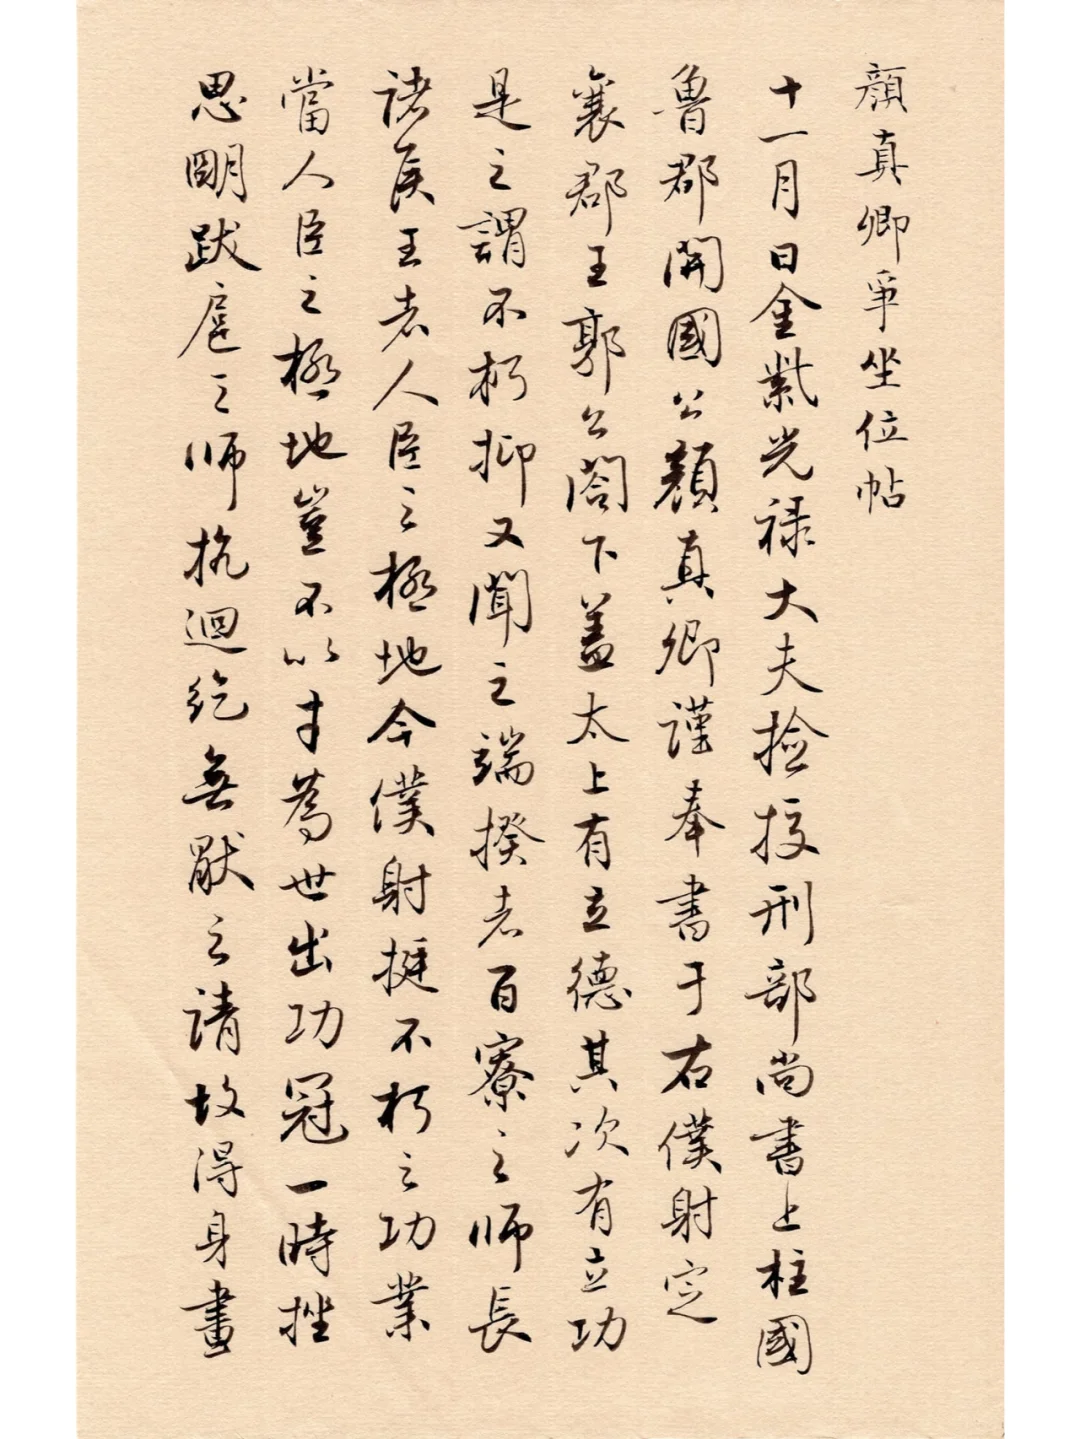 顏真卿爭坐位帖
十一月日金紫光禄大夫撿挍刑部尚書上柱國
魯郡開國公顏真卿謹奉書于右僕射定
襄郡王郭公閤下蓋太上有立德其次有立功
是之謂不朽抑又聞之端揆者百寮之師長
諸侯王者人臣之極地今僕射挺不朽之功業
當人臣之極地豈不以才為世出功冠一時挫
思明跋扈之師抗迴紇無厭之請故得身畫